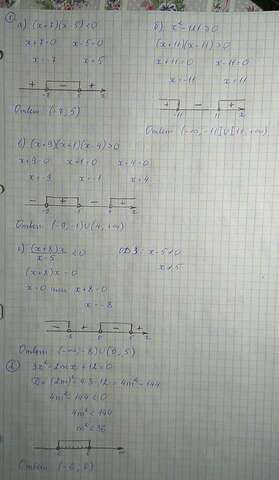 ①
а) (x+7)(x-5)<0
x+7=0   x-5=0
x=-7   x=5
+ - +
-7 5 x
Ответ: (-7; 5)
б) x²-121≥0
(x+11)(x-11)≥0
x+11=0   x-11=0
x=-11   x=11
+ - +
-11 11 x
Ответ: (-∞; -11]∪[11; +∞)
в) (x+9)(x+1)(x-4)>0
x+9=0   x+1=0   x-4=0
x=-9   x=-1   x=4
- + - +
-9 -1 4 x
Ответ: (-9; -1)∪(4; +∞)
г) (x+8)x / x-5 <0   ОДЗ: x-5≠0
(x+8)x=0   x≠5
x=0 или x+8=0
x=-8
- + - +
-8 0 5 x
Ответ: (-∞; -8)∪(0; 5)
②
3x²-2mx+12=0
D=(2m)²-4·3·12=4m²-144
4m²-144<0
4m²<144
m²<36
-6 6
Ответ: (-6; 6)